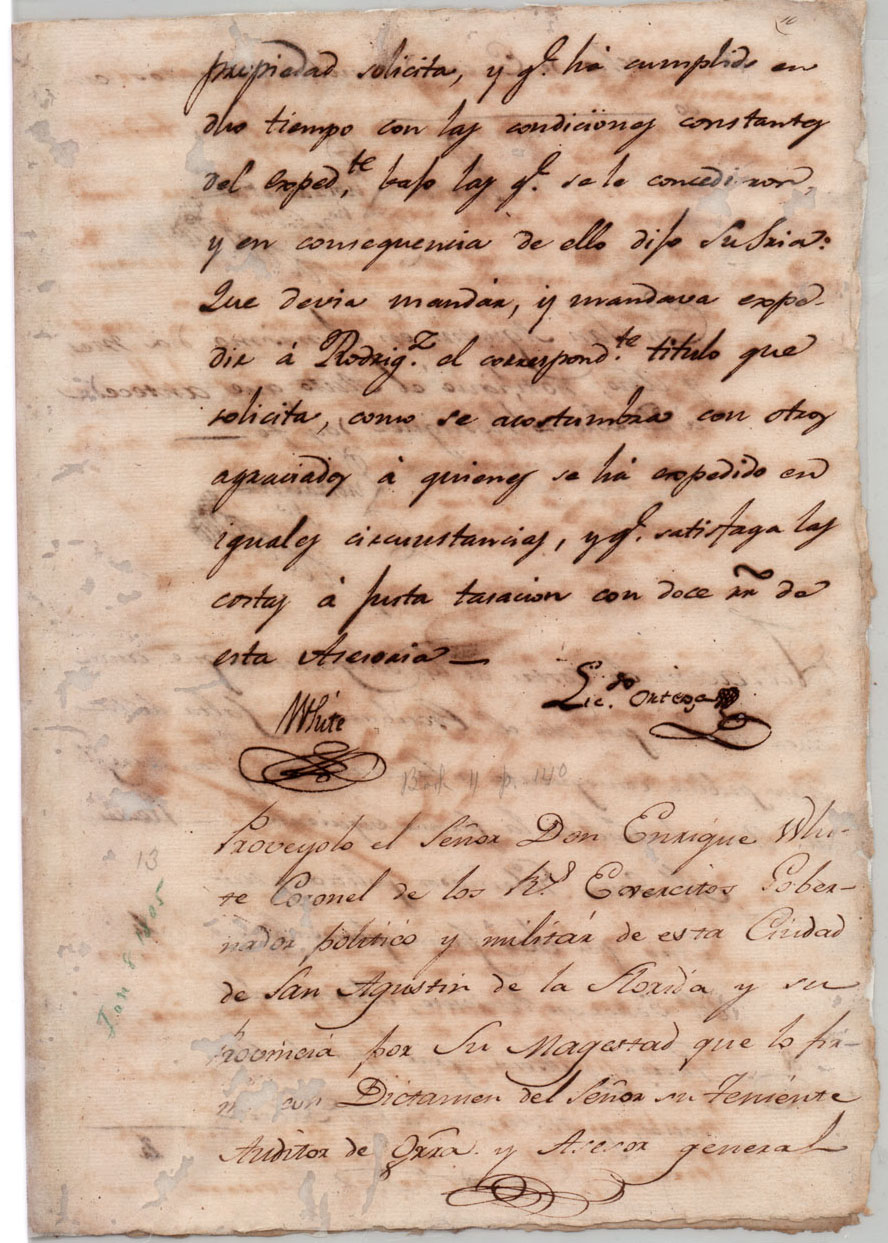 10
propiedad solicita, y q.e há cumplido en
dho tiempo con las condiciones constantes
del exped.te, bajo las q.e se le concedieron,
y en consequencia de ello dijo Su Sria:
Que devia mandár, y mandava expe-
dir á Rodrig.z el correspond.te titulo que
solicita, como se acostumbra con otros
agraciados á quienes se há expedido en
iguales circunstancias, y q.e satisfaga las
costas á justa tasacion con doce rr.s de
esta Asesoria—
White
Lic.do Ortega
Book 11 p. 140
Proveyolo el Señor Don Enrique Whi-
te Coronel de los R.s Exercitos Gober-
nador politico y militár de esta Ciudad
de San Agustin de la Florida y su
Provincia por Su Magestad que lo fir-
mó con Dictamen del Señor su Teniente
Auditor de Grra. y Asesor general
13
Jan 8